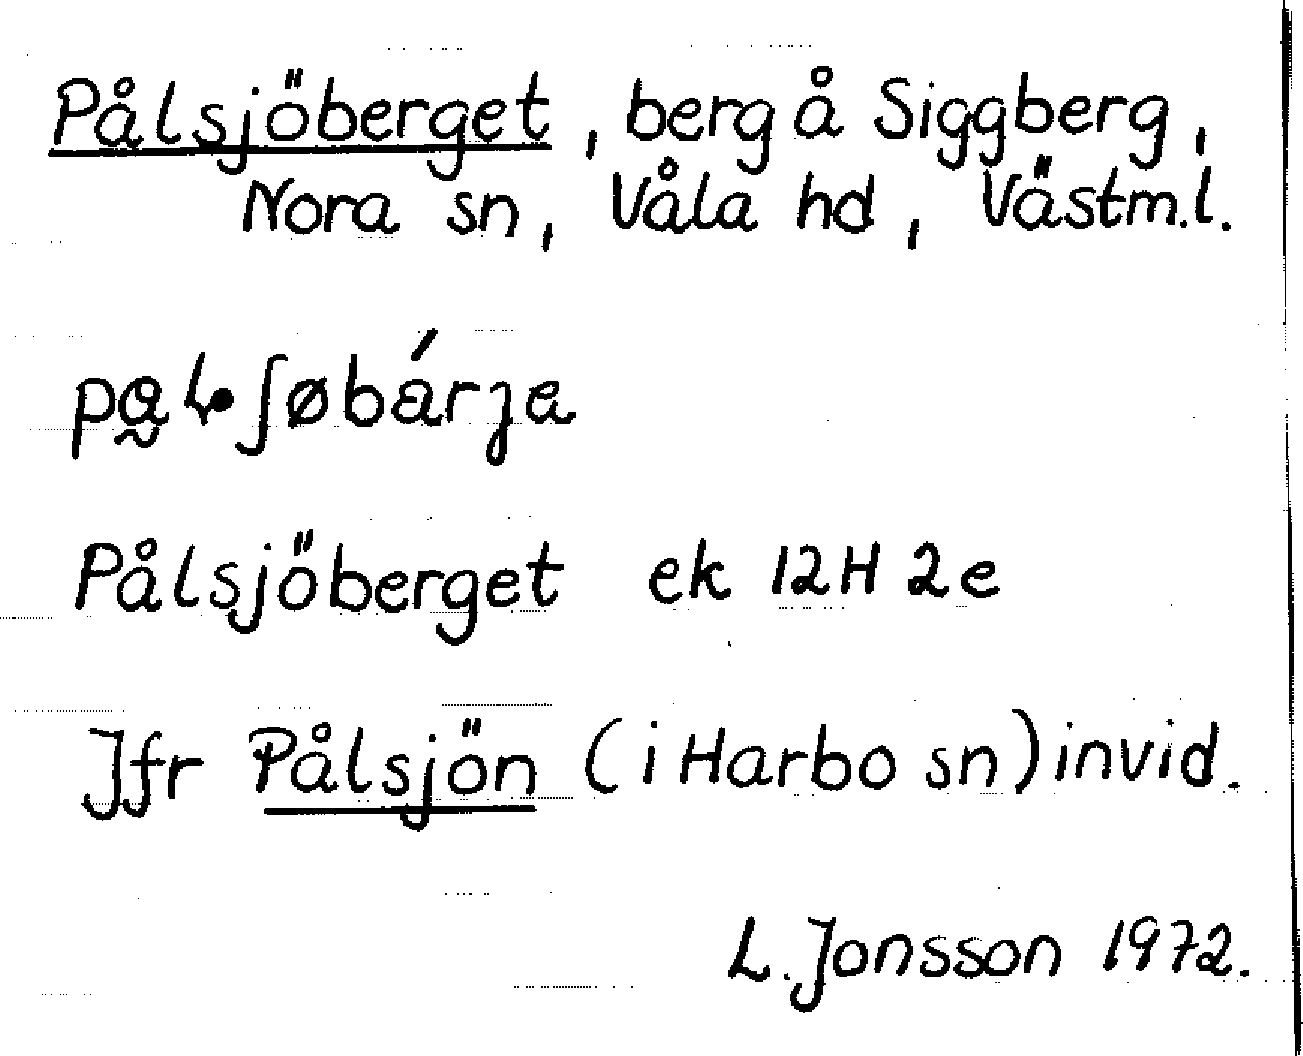 Pålsjöberget, berg å Siggberg,
Nora sn, Våla hd, Västm.l.
Pålsjöberget ek 12H 2e
Jfr Pålsjön (i Harbo sn) invid.
L. Jonsson 1972.